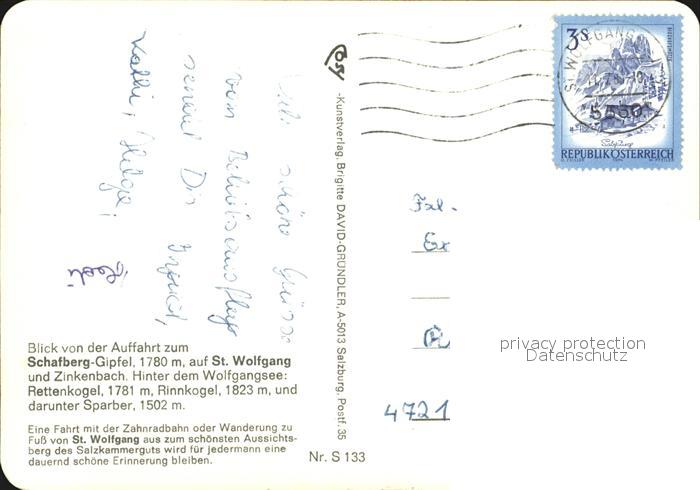 schöne Grüsse
vom Betriebsausflug
sendet Dir
Kathi, Helga,
Blick von der Auffahrt zum
Schafberg-Gipfel, 1780 m, auf St. Wolfgang
und Zinkenbach. Hinter dem Wolfgangsee:
Rettenkogel, 1781 m, Rinnkogel, 1823 m, und
darunter Sparber, 1502 m.
Eine Fahrt mit der Zahnradbahn oder Wanderung zu
Fuß von St. Wolfgang aus zum schönsten Aussichts-
berg des Salzkammerguts wird für jedermann eine
dauernd schöne Erinnerung bleiben.
Nr. S 133
-Kunstverlag, Brigitte DAVID-GRÜNDLER, A-5013 Salzburg, Postf. 35
3s
ST. WOLFGANG
REPUBLIK ÖSTERREICH
Frl.
4721
privacy protection
Datenschutz